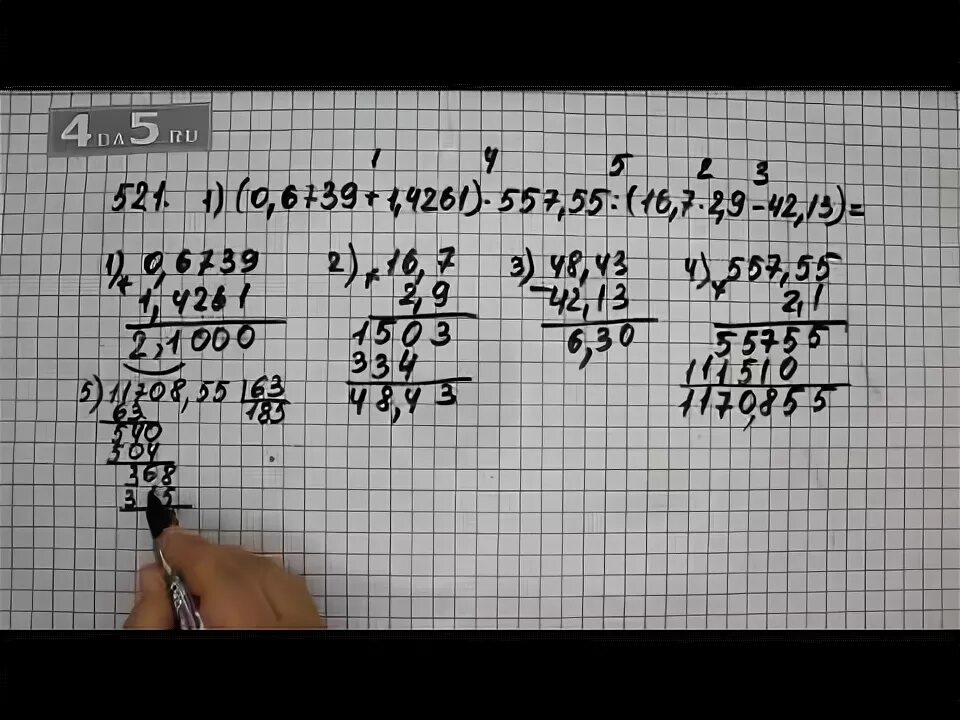 4DA5.RU
1 4 5 2 3
521. 1) (0,6739+1,4261)·557,55:(16,7·2,9-42,13)=
1) + 0,6739
1,4261
2,1000
2) × 16,7
2,9
1503
334
48,43
3) - 48,43
42,13
6,30
4) × 557,55
2,1
55755
111510
1170,855
5) 11708,55 | 63
63
185
540
504
368
3 5